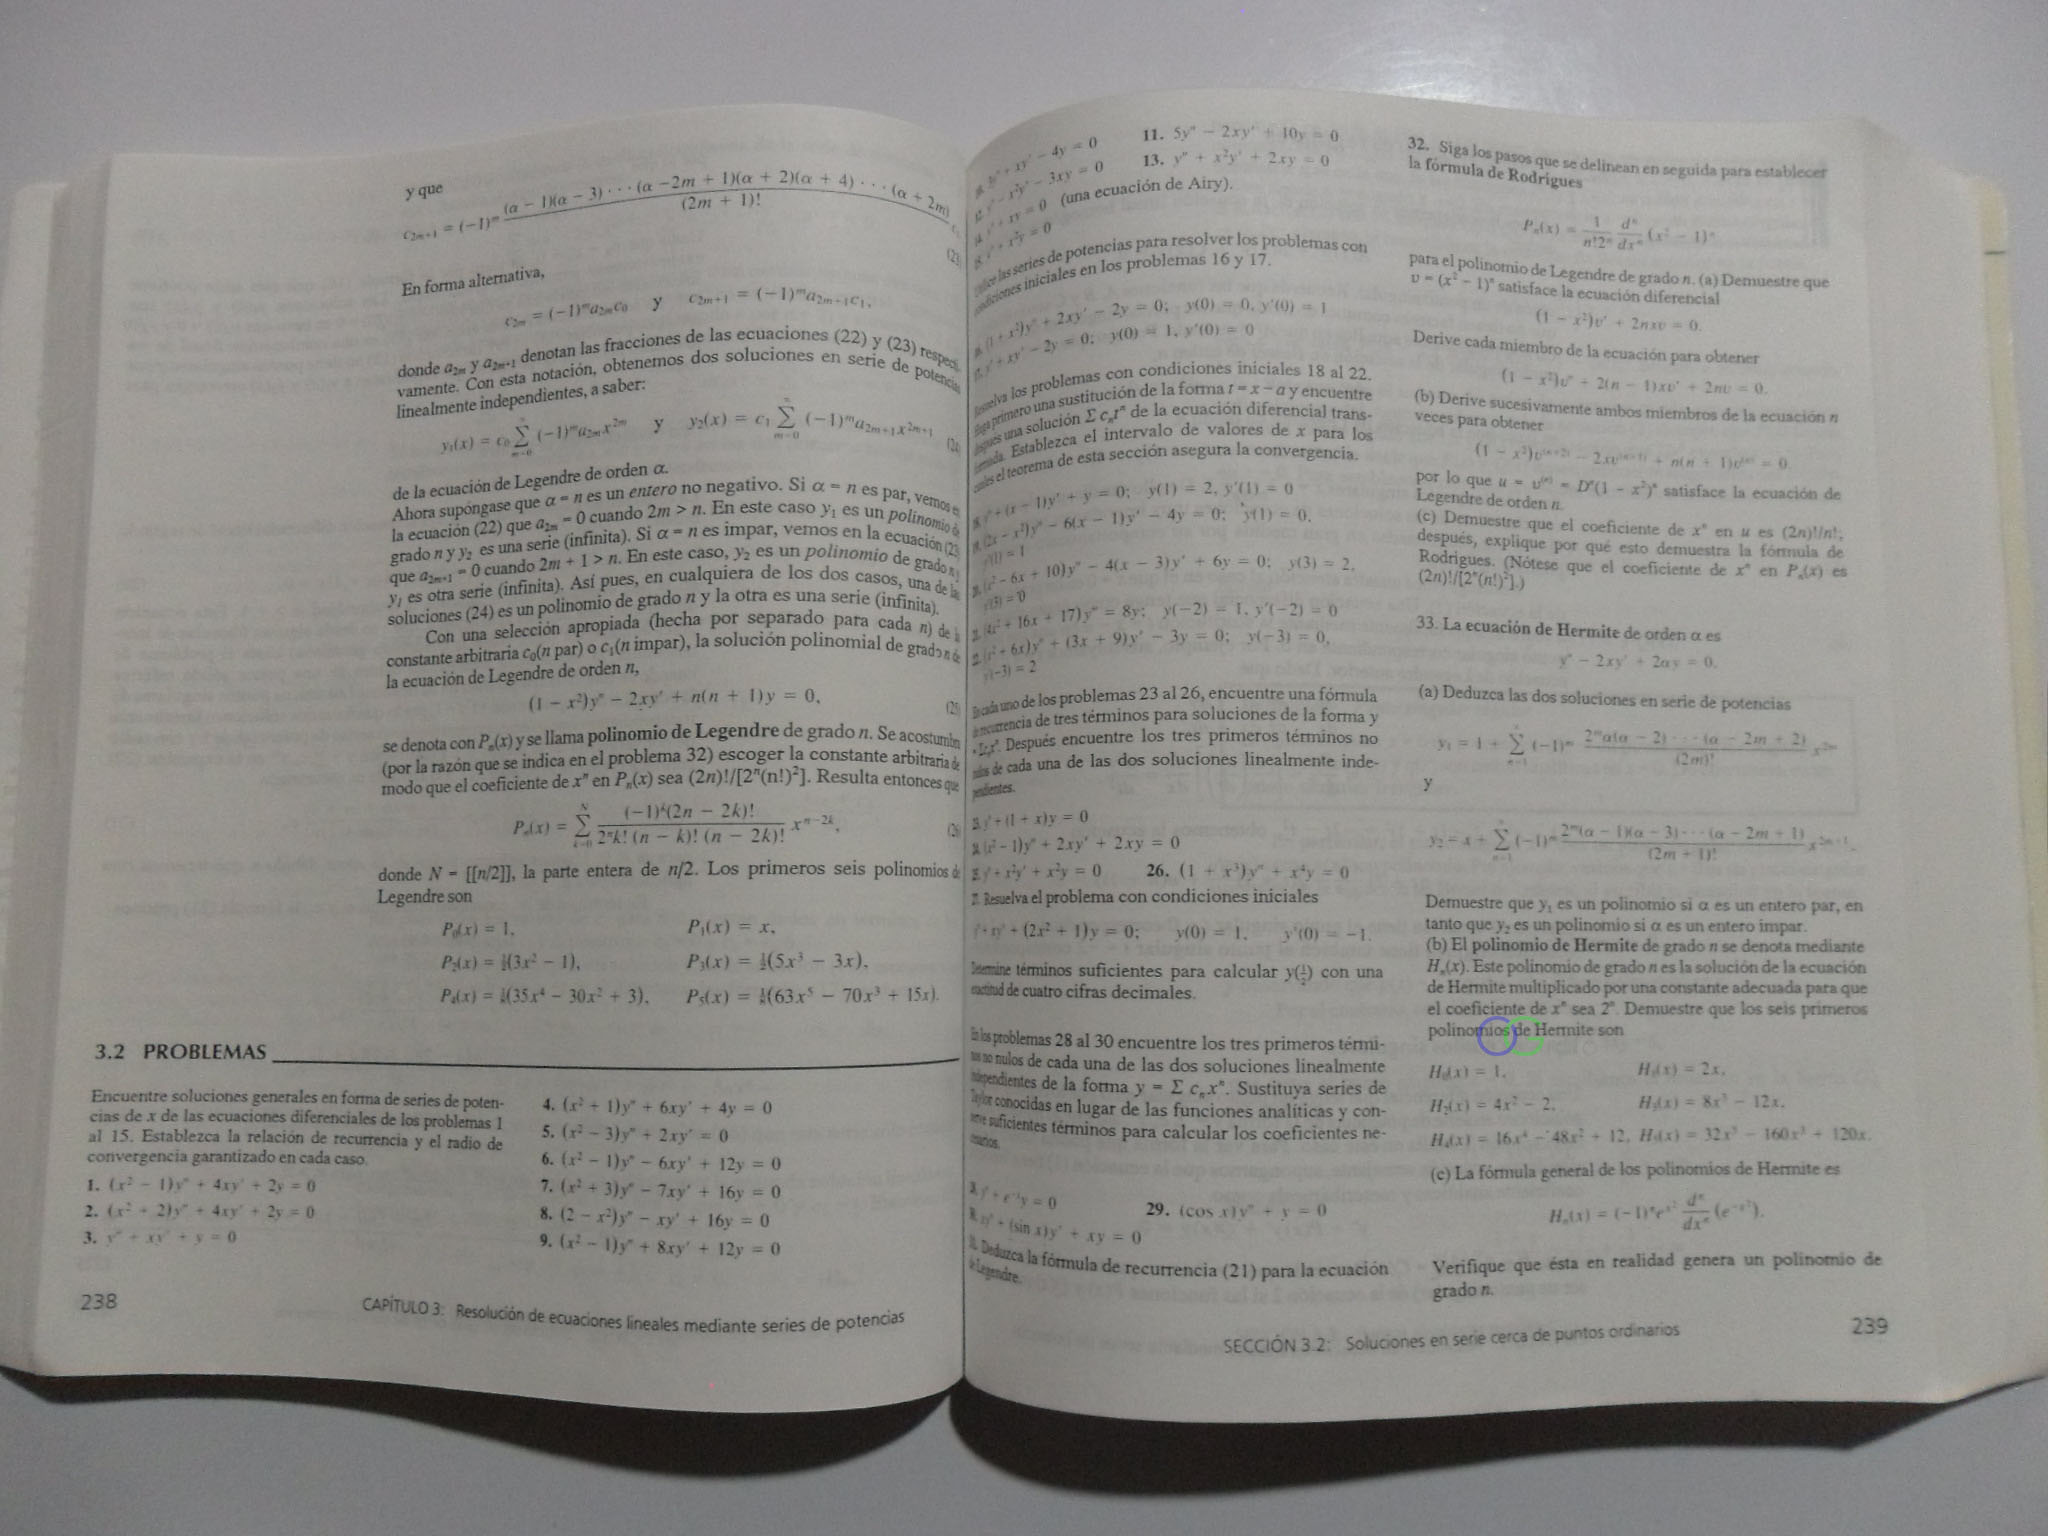 y que
c₂ₘ₊₁ = (−1)ᵐ (α − 1)(α − 3) · · · (α − 2m + 1)(α + 2)(α + 4) · · · (α + 2m) / (2m + 1)!
(23)
En forma alternativa,
c₂ₘ = (−1)ᵐa₂ₘc₀ y c₂ₘ₊₁ = (−1)ᵐa₂ₘ₊₁c₁,
donde a₂ₘ y a₂ₘ₊₁ denotan las fracciones de las ecuaciones (22) y (23) respecti-
vamente. Con esta notación, obtenemos dos soluciones en serie de potencias
linealmente independientes, a saber:
y₁(x) = c₀ ∑ (−1)ᵐa₂ₘx²ᵐ y y₂(x) = c₁ ∑ (−1)ᵐa₂ₘ₊₁x²ᵐ⁺¹ (24)
de la ecuación de Legendre de orden α.
Ahora supóngase que α = n es un entero no negativo. Si α = n es par, vemos en
la ecuación (22) que a₂ₘ = 0 cuando 2m > n. En este caso y₁ es un polinomio de
grado n y y₂ es una serie (infinita). Si α = n es impar, vemos en la ecuación (23)
que a₂ₘ₊₁ = 0 cuando 2m + 1 > n. En este caso, y₂ es un polinomio de grado n y
y₁ es otra serie (infinita). Así pues, en cualquiera de los dos casos, una de las
soluciones (24) es un polinomio de grado n y la otra es una serie (infinita).
Con una selección apropiada (hecha por separado para cada n) de la
constante arbitraria c₀(n par) o c₁(n impar), la solución polinomial de grado n de
la ecuación de Legendre de orden n,
(1 − x²)y″ − 2xy′ + n(n + 1)y = 0, (25)
se denota con Pₙ(x) y se llama polinomio de Legendre de grado n. Se acostumbra
(por la razón que se indica en el problema 32) escoger la constante arbitraria de
modo que el coeficiente de xⁿ en Pₙ(x) sea (2n)!/[2ⁿ(n!)²]. Resulta entonces que
Pₙ(x) = ∑ (−1)ᵏ(2n − 2k)! / 2ⁿk! (n − k)! (n − 2k)! xⁿ⁻²ᵏ, (26)
donde N = [[n/2]], la parte entera de n/2. Los primeros seis polinomios de
Legendre son
P₀(x) = 1, P₁(x) = x,
P₂(x) = ½(3x² − 1), P₃(x) = ½(5x³ − 3x),
P₄(x) = ⅛(35x⁴ − 30x² + 3), P₅(x) = ⅛(63x⁵ − 70x³ + 15x).
3.2 PROBLEMAS
Encuentre soluciones generales en forma de series de poten-
cias de x de las ecuaciones diferenciales de los problemas 1
al 15. Establezca la relación de recurrencia y el radio de
convergencia garantizado en cada caso.
1. (x² − 1)y″ + 4xy′ + 2y = 0
2. (x² + 2)y″ + 4xy′ + 2y = 0
3. y″ + xy′ + y = 0
4. (x² + 1)y″ + 6xy′ + 4y = 0
5. (x² − 3)y″ + 2xy′ = 0
6. (x² − 1)y″ − 6xy′ + 12y = 0
7. (x² + 3)y″ − 7xy′ + 16y = 0
8. (2 − x²)y″ − xy′ + 16y = 0
9. (x² − 1)y″ + 8xy′ + 12y = 0
238
CAPÍTULO 3: Resolución de ecuaciones lineales mediante series de potencias
+ xy′ − 4y = 0 11. 5y″ − 2xy′ + 10y = 0
12. y″ − x²y′ − 3xy = 0 13. y″ + x²y′ + 2xy = 0
14. y″ + xy = 0 (una ecuación de Airy).
15. y″ + x²y = 0
Utilice las series de potencias para resolver los problemas con
condiciones iniciales en los problemas 16 y 17.
16. (1 + x²)y″ + 2xy′ − 2y = 0; y(0) = 0, y′(0) = 1
17. y″ + xy′ − 2y = 0; y(0) = 1, y′(0) = 0
Resuelva los problemas con condiciones iniciales 18 al 22.
Haga primero una sustitución de la forma t = x − a y encuentre
después una solución Σ cₙtⁿ de la ecuación diferencial trans-
formada. Establezca el intervalo de valores de x para los
cuales el teorema de esta sección asegura la convergencia.
18. y″ + (x − 1)y′ + y = 0; y(1) = 2, y′(1) = 0
19. (2x − x²)y″ − 6(x − 1)y′ − 4y = 0; y(1) = 0,
y′(1) = 1
20. (x² − 6x + 10)y″ − 4(x − 3)y′ + 6y = 0; y(3) = 2,
y′(3) = 0
21. (4x² + 16x + 17)y″ = 8y; y(−2) = 1, y′(−2) = 0
22. (x² + 6x)y″ + (3x + 9)y′ − 3y = 0; y(−3) = 0,
y′(−3) = 2
En cada uno de los problemas 23 al 26, encuentre una fórmula
de recurrencia de tres términos para soluciones de la forma y
= Σcₙxⁿ. Después encuentre los tres primeros términos no
nulos de cada una de las dos soluciones linealmente inde-
pendientes.
23. y″ + (1 + x)y = 0
24. (x² − 1)y″ + 2xy′ + 2xy = 0
25. y″ + x²y′ + x²y = 0 26. (1 + x³)y″ + x⁴y = 0
27. Resuelva el problema con condiciones iniciales
y″ + xy′ + (2x² + 1)y = 0; y(0) = 1, y′(0) = −1.
Determine términos suficientes para calcular y(½) con una
exactitud de cuatro cifras decimales.
En los problemas 28 al 30 encuentre los tres primeros térmi-
nos no nulos de cada una de las dos soluciones linealmente
independientes de la forma y = Σ cₙxⁿ. Sustituya series de
Taylor conocidas en lugar de las funciones analíticas y con-
serve suficientes términos para calcular los coeficientes ne-
cesarios.
28. y″ + e⁻ˣy = 0 29. (cos x)y″ + y = 0
30. xy″ + (sin x)y′ + xy = 0
31. Deduzca la fórmula de recurrencia (21) para la ecuación
de Legendre.
32. Siga los pasos que se delinean en seguida para establecer
la fórmula de Rodrigues
Pₙ(x) = 1/n!2ⁿ dⁿ/dxⁿ (x² − 1)ⁿ
para el polinomio de Legendre de grado n. (a) Demuestre que
υ = (x² − 1)ⁿ satisface la ecuación diferencial
(1 − x²)υ′ + 2nxυ = 0.
Derive cada miembro de la ecuación para obtener
(1 − x²)υ″ + 2(n − 1)xυ′ + 2nυ = 0.
(b) Derive sucesivamente ambos miembros de la ecuación n
veces para obtener
(1 − x²)υ⁽ⁿ⁺²⁾ − 2xυ⁽ⁿ⁺¹⁾ + n(n + 1)υ⁽ⁿ⁾ = 0.
por lo que u = υ⁽ⁿ⁾ = Dⁿ(1 − x²)ⁿ satisface la ecuación de
Legendre de orden n.
(c) Demuestre que el coeficiente de xⁿ en u es (2n)!/n!;
después, explique por qué esto demuestra la fórmula de
Rodrigues. (Nótese que el coeficiente de xⁿ en Pₙ(x) es
(2n)!/[2ⁿ(n!)²].)
33. La ecuación de Hermite de orden α es
y″ − 2xy′ + 2αy = 0.
(a) Deduzca las dos soluciones en serie de potencias
y₁ = 1 + ∑ (−1)ᵐ 2ᵐα(α − 2) · · · (α − 2m + 2) / (2m)! x²ᵐ
y
y₂ = x + ∑ (−1)ᵐ 2ᵐ(α − 1)(α − 3) · · · (α − 2m + 1) / (2m + 1)! x²ᵐ⁺¹.
Demuestre que y₁ es un polinomio si α es un entero par, en
tanto que y₂ es un polinomio si α es un entero impar.
(b) El polinomio de Hermite de grado n se denota mediante
Hₙ(x). Este polinomio de grado n es la solución de la ecuación
de Hermite multiplicado por una constante adecuada para que
el coeficiente de xⁿ sea 2ⁿ. Demuestre que los seis primeros
polinomios de Hermite son
H₀(x) = 1, H₁(x) = 2x,
H₂(x) = 4x² − 2, H₃(x) = 8x³ − 12x,
H₄(x) = 16x⁴ − 48x² + 12, H₅(x) = 32x⁵ − 160x³ + 120x.
(c) La fórmula general de los polinomios de Hermite es
Hₙ(x) = (−1)ⁿeˣ² dⁿ/dxⁿ (e⁻ˣ²).
Verifique que ésta en realidad genera un polinomio de
grado n.
SECCIÓN 3.2: Soluciones en serie cerca de puntos ordinarios
239